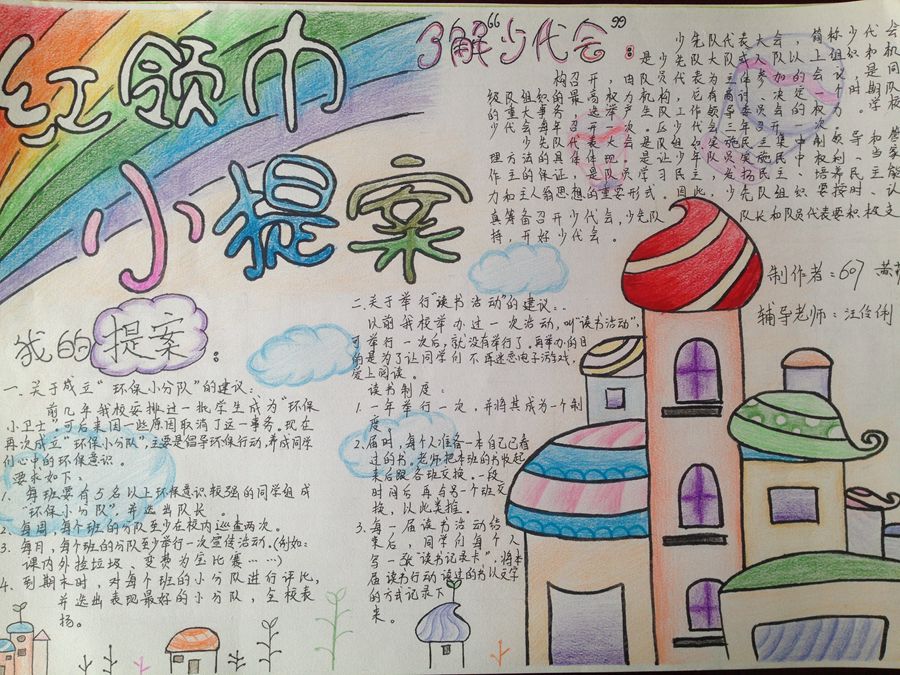 红领巾
小提案
了解“少代会”：
少先队代表大会，简称少代会
是少先队大队或大队以上组织和机
构召开，由队员代表为主体参加的会议，是同
级队组织的最高权力机构，它有商讨、决定一个时期队
的重大事务，选举产生队工作领导委员会的权力。学校
少代会每年召开一次。区少代会三年召开一次。
少先队代表大会是队组织实施民主集中制领导和管
理方法的具体体现。是让少年队员实施民中权利、当家
作主的保证，是队员学习民主，发扬民主、培养民主能
力和主人翁思想的重要形式。因此，少先队组织要按时、认
真筹备召开少代会，少先队队长和队员代表要积极支
持，开好少代会。
制作者：607 黄
辅导老师：汪俊俐
我的提案：
一、关于成立“环保小分队”的建议：
前几年我校安排过一批学生成为“环保
小卫士”，可后来因一些原因取消了这一事务，现在
再次成立“环保小分队”，主要是倡导环保行动，养成同学
们心中的环保意识。
要求如下：
1、每班要有5名以上环保意识较强的同学组成
“环保小分队”，并选出队长。
2、每周，每个班的分队至少在校内巡查两次。
3、每月，每个班的分队至少举行一次宣传活动。（例如：
课内外捡垃圾、变废为宝比赛……）
4、到期末时，对每个班的小分队进行评比，
并选出表现最好的小分队，全校表
扬。
二关于举行“读书活动”的建议：
以前我校举办过一次活动，叫“读书活动”，
可举行一次后，就没有举行了。再举办的目
的是为了让同学们不再迷恋电子游戏，
爱上阅读。
读书制度：
1.一年举行一次，并将其成为一个制
度。
2.届时，每个人准备一本自己已看
过的书，老师把本班的书收起
来后跟各班交换。一段
时间后再与另一个班交
换，以此类推。
3.每一届读书活动结
束后，同学们每个人
写一张“读书记录卡”，将本
届读书行动读过的书以文字
的方式记录下
来。